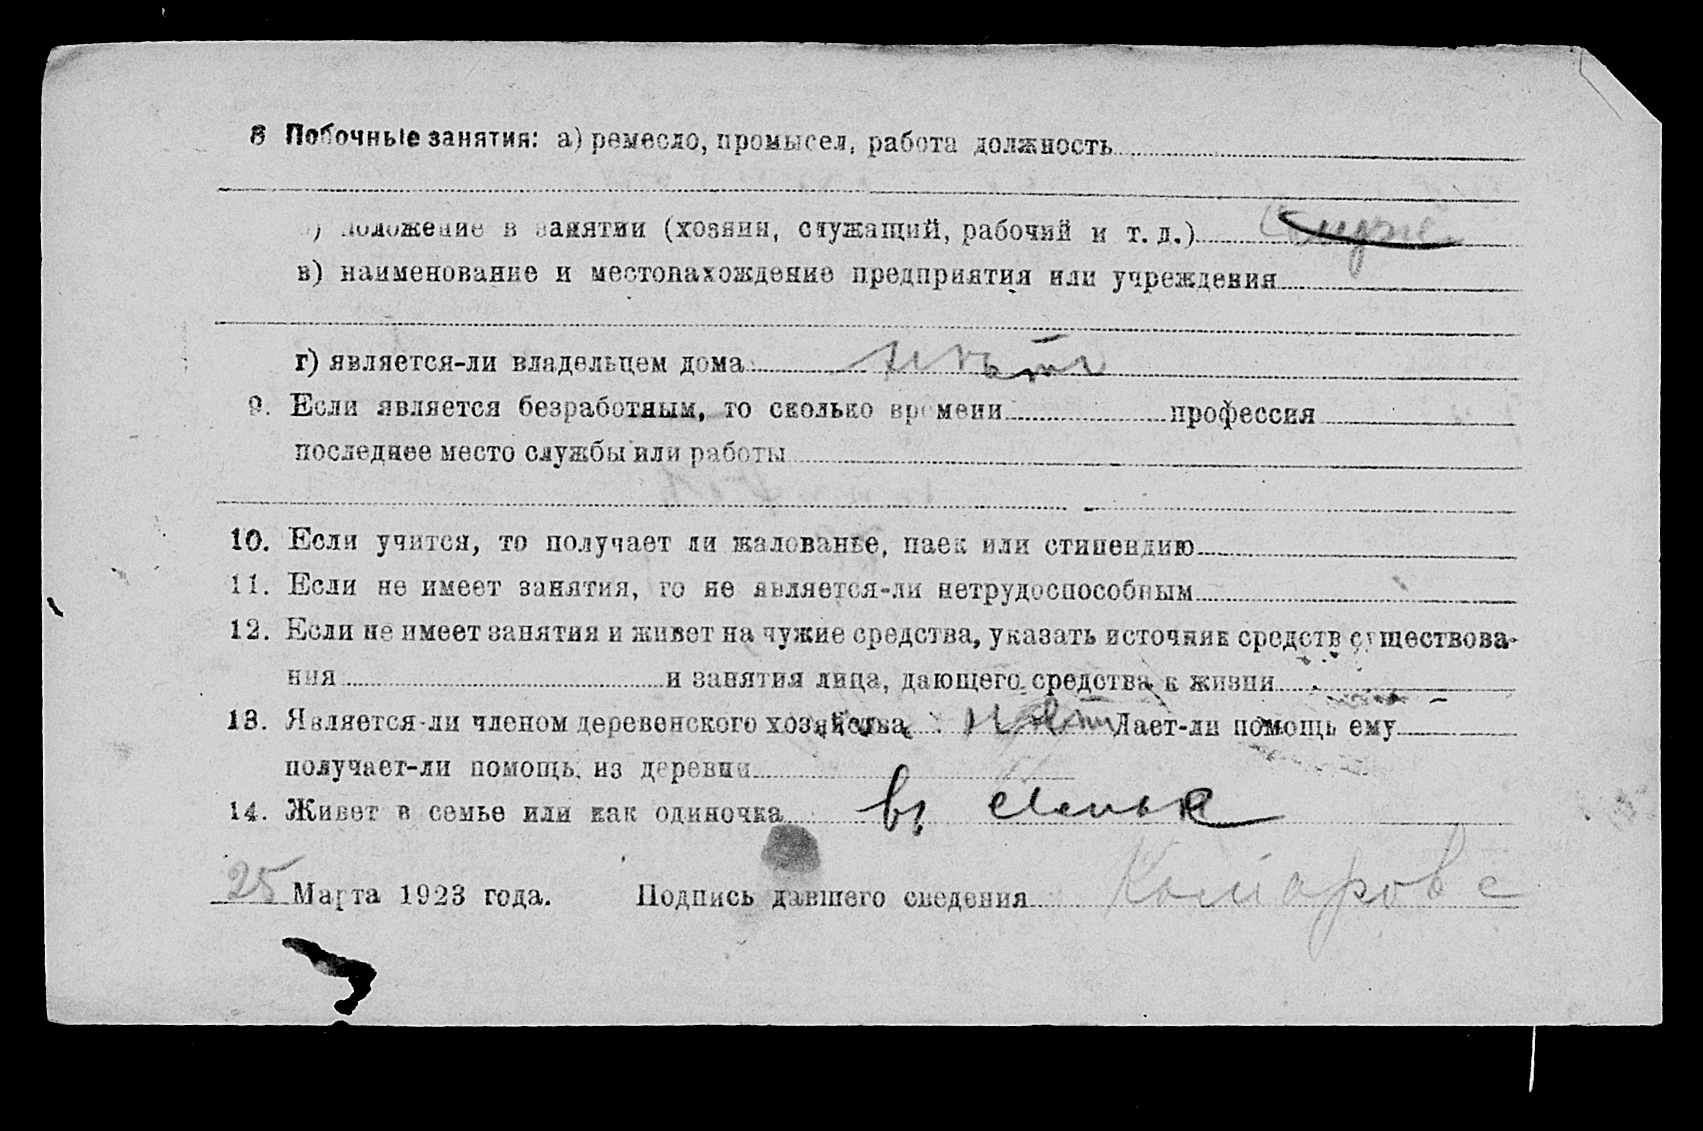 8 Побочные занятия: а) ремесло, промысел, работа должность
б) положение в занятии (хозяин, служащий, рабочий и т. д.)
в) наименование и местонахождение предприятия или учреждения
г) является-ли владельцем дома
9. Если является безработным, то сколько времени профессия
последнее место службы или работы
10. Если учится, то получает ли жалованье, паек или стипендию
11. Если не имеет занятия, то не является-ли нетрудоспособным
12. Если не имеет занятия и живет на чужие средства, указать источник средств существова-
ния и занятия лица, дающего средства к жизни
13. Является-ли членом деревенского хозяйства Дает-ли помощь ему
получает-ли помощь из деревни
14. Живет в семье или как одиночка в семье
25 Марта 1923 года. Подпись давшего сведения Комарова